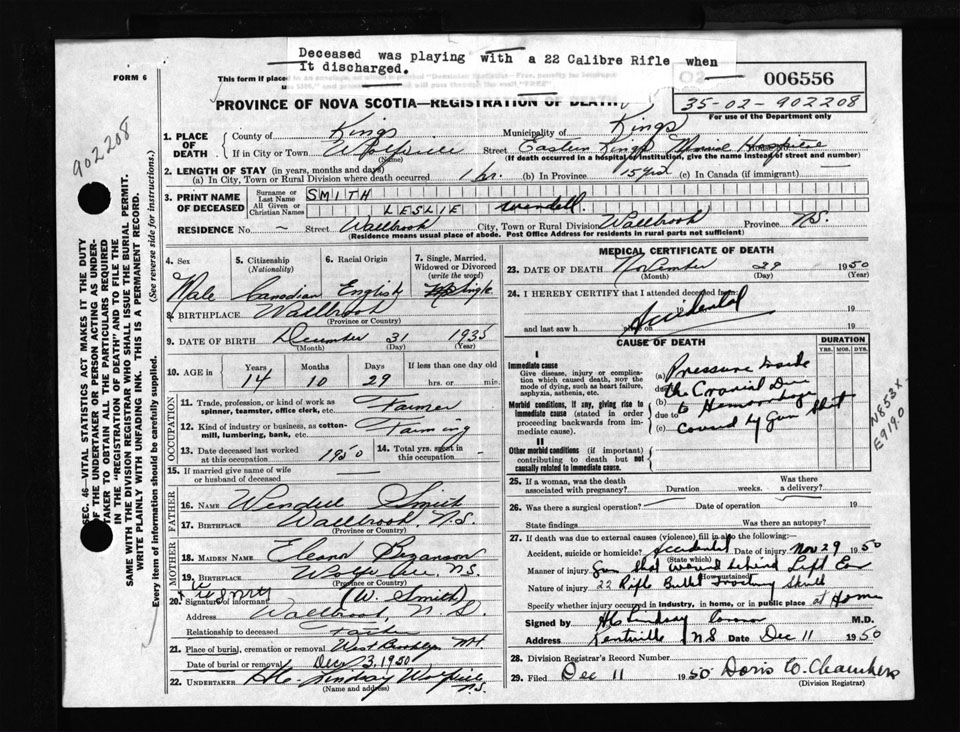 Deceased was playing with a 22 Calibre Rifle when
It discharged.
FORM 6
This form if place
O2
006556
35-02-902208
For use of the Department only
PROVINCE OF NOVA SCOTIA—REGISTRATION OF DEATH
902208
1. PLACE OF DEATH
County of Kings Municipality of Kings
If in City or Town Wolfville Street Eastern Kings Memorial Hospital
(Name) (If death occurred in a hospital or institution, give the name instead of street and number)
2. LENGTH OF STAY (in years, months and days)
(a) In City, Town or Rural Division where death occurred 1 hr. (b) In Province 15 yrs (c) In Canada (if immigrant)
3. PRINT NAME OF DECEASED
Surname or Last Name SMITH
All Given or Christian Names LESLIE Wendell
RESIDENCE No. – Street Wallbrook City, Town or Rural Division Wallbrook Province N.S.
(Residence means usual place of abode. Post Office Address for residents in rural parts not sufficient)
4. Sex 5. Citizenship (Nationality) 6. Racial Origin 7. Single, Married, Widowed or Divorced (write the word)
Male Canadian English Single
8. BIRTHPLACE Wallbrook
(Province or Country)
9. DATE OF BIRTH December 31 1935
(Month) (Day) (Year)
10. AGE in Years Months Days If less than one day old
14 10 29 hrs. or min.
OCCUPATION
11. Trade, profession, or kind of work as spinner, teamster, office clerk, etc. Farmer
12. Kind of industry or business, as cotton-mill, lumbering, bank, etc. Farming
13. Date deceased last worked at this occupation 1950 14. Total yrs. spent in this occupation -
15. If married give name of wife or husband of deceased
FATHER
16. NAME Wendell Smith
17. BIRTHPLACE Wallbrook, N.S.
(Province or Country)
MOTHER
18. MAIDEN NAME Eleanor Bezanson
19. BIRTHPLACE Wolfville, N.S.
(Province or Country)
20. Signature of informant (W. Smith)
Address Wallbrook, N.S.
Relationship to deceased Father
21. Place of burial, cremation or removal West Brooklyn NS
Date of burial or removal Dec 3, 1950
22. UNDERTAKER H.C. Lindsay Wolfville N.S.
(Name and address)
MEDICAL CERTIFICATE OF DEATH
23. DATE OF DEATH November 29 1950
(Month) (Day) (Year)
24. I HEREBY CERTIFY that I attended deceased from:
Accidental 19
and last saw h alive on 19
CAUSE OF DEATH
DURATION
YRS. MOS. DYS.
I
Immediate cause
Give disease, injury or complication which caused death, NOT the mode of dying, such as heart failure, asphyxia, asthenia, etc.
(a) Pressure inside
due to the Cranial Due
Morbid conditions, if any, giving rise to immediate cause (stated in order proceeding backwards from immediate cause).
(b) to Hemorrhage
due to
(c) Caused by Gun Shot
II
Other morbid conditions (if important) contributing to death but not causally related to immediate cause.
N853X
E919.0
25. If a woman, was the death associated with pregnancy? Duration weeks. Was there a delivery?
26. Was there a surgical operation? Date of operation 19
State findings Was there an autopsy?
27. If death was due to external causes (violence) fill in also the following:
Accident, suicide or homicide? Accidental Date of injury Nov 29 1950
(State which)
Manner of injury Gun shot wound behind Left Ear
(How sustained)
Nature of injury 22 Rifle Bullet Skull
Specify whether injury occurred in industry, in home, or in public place at Home
Signed by H.C. Lindsay Coroner M.D.
Address Kentville NS Date Dec 11 1950
28. Division Registrar's Record Number
29. Filed Dec 11 1950 Doris W. Chambers
(Division Registrar)
SEC. 46—VITAL STATISTICS ACT MAKES IT THE DUTY
OF THE UNDERTAKER OR PERSON ACTING AS UNDER-
TAKER TO OBTAIN ALL THE PARTICULARS REQUIRED
IN THE "REGISTRATION OF DEATH" AND TO FILE THE
SAME WITH THE DIVISION REGISTRAR WHO SHALL ISSUE THE BURIAL PERMIT.
WRITE PLAINLY WITH UNFADING INK. THIS IS A PERMANENT RECORD.
Every item of information should be carefully supplied. (See reverse side for instructions.)